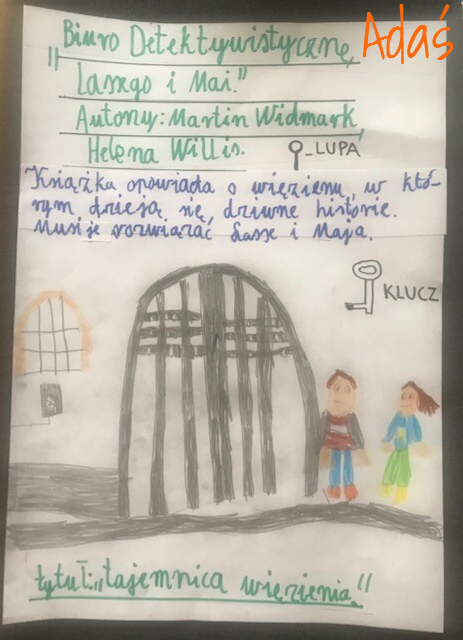 Biuro Detektywistyczne, Adaś
"Lassego i Mai."
Autorzy: Martin Widmark,
Helena Willis. - LUPA
Książka opowiada o więzieniu, w któ-
rym dzieją się dziwne historie.
Musi je rozwiązać Lasse i Maja.
KLUCZ
tytuł: "tajemnica więzienia"